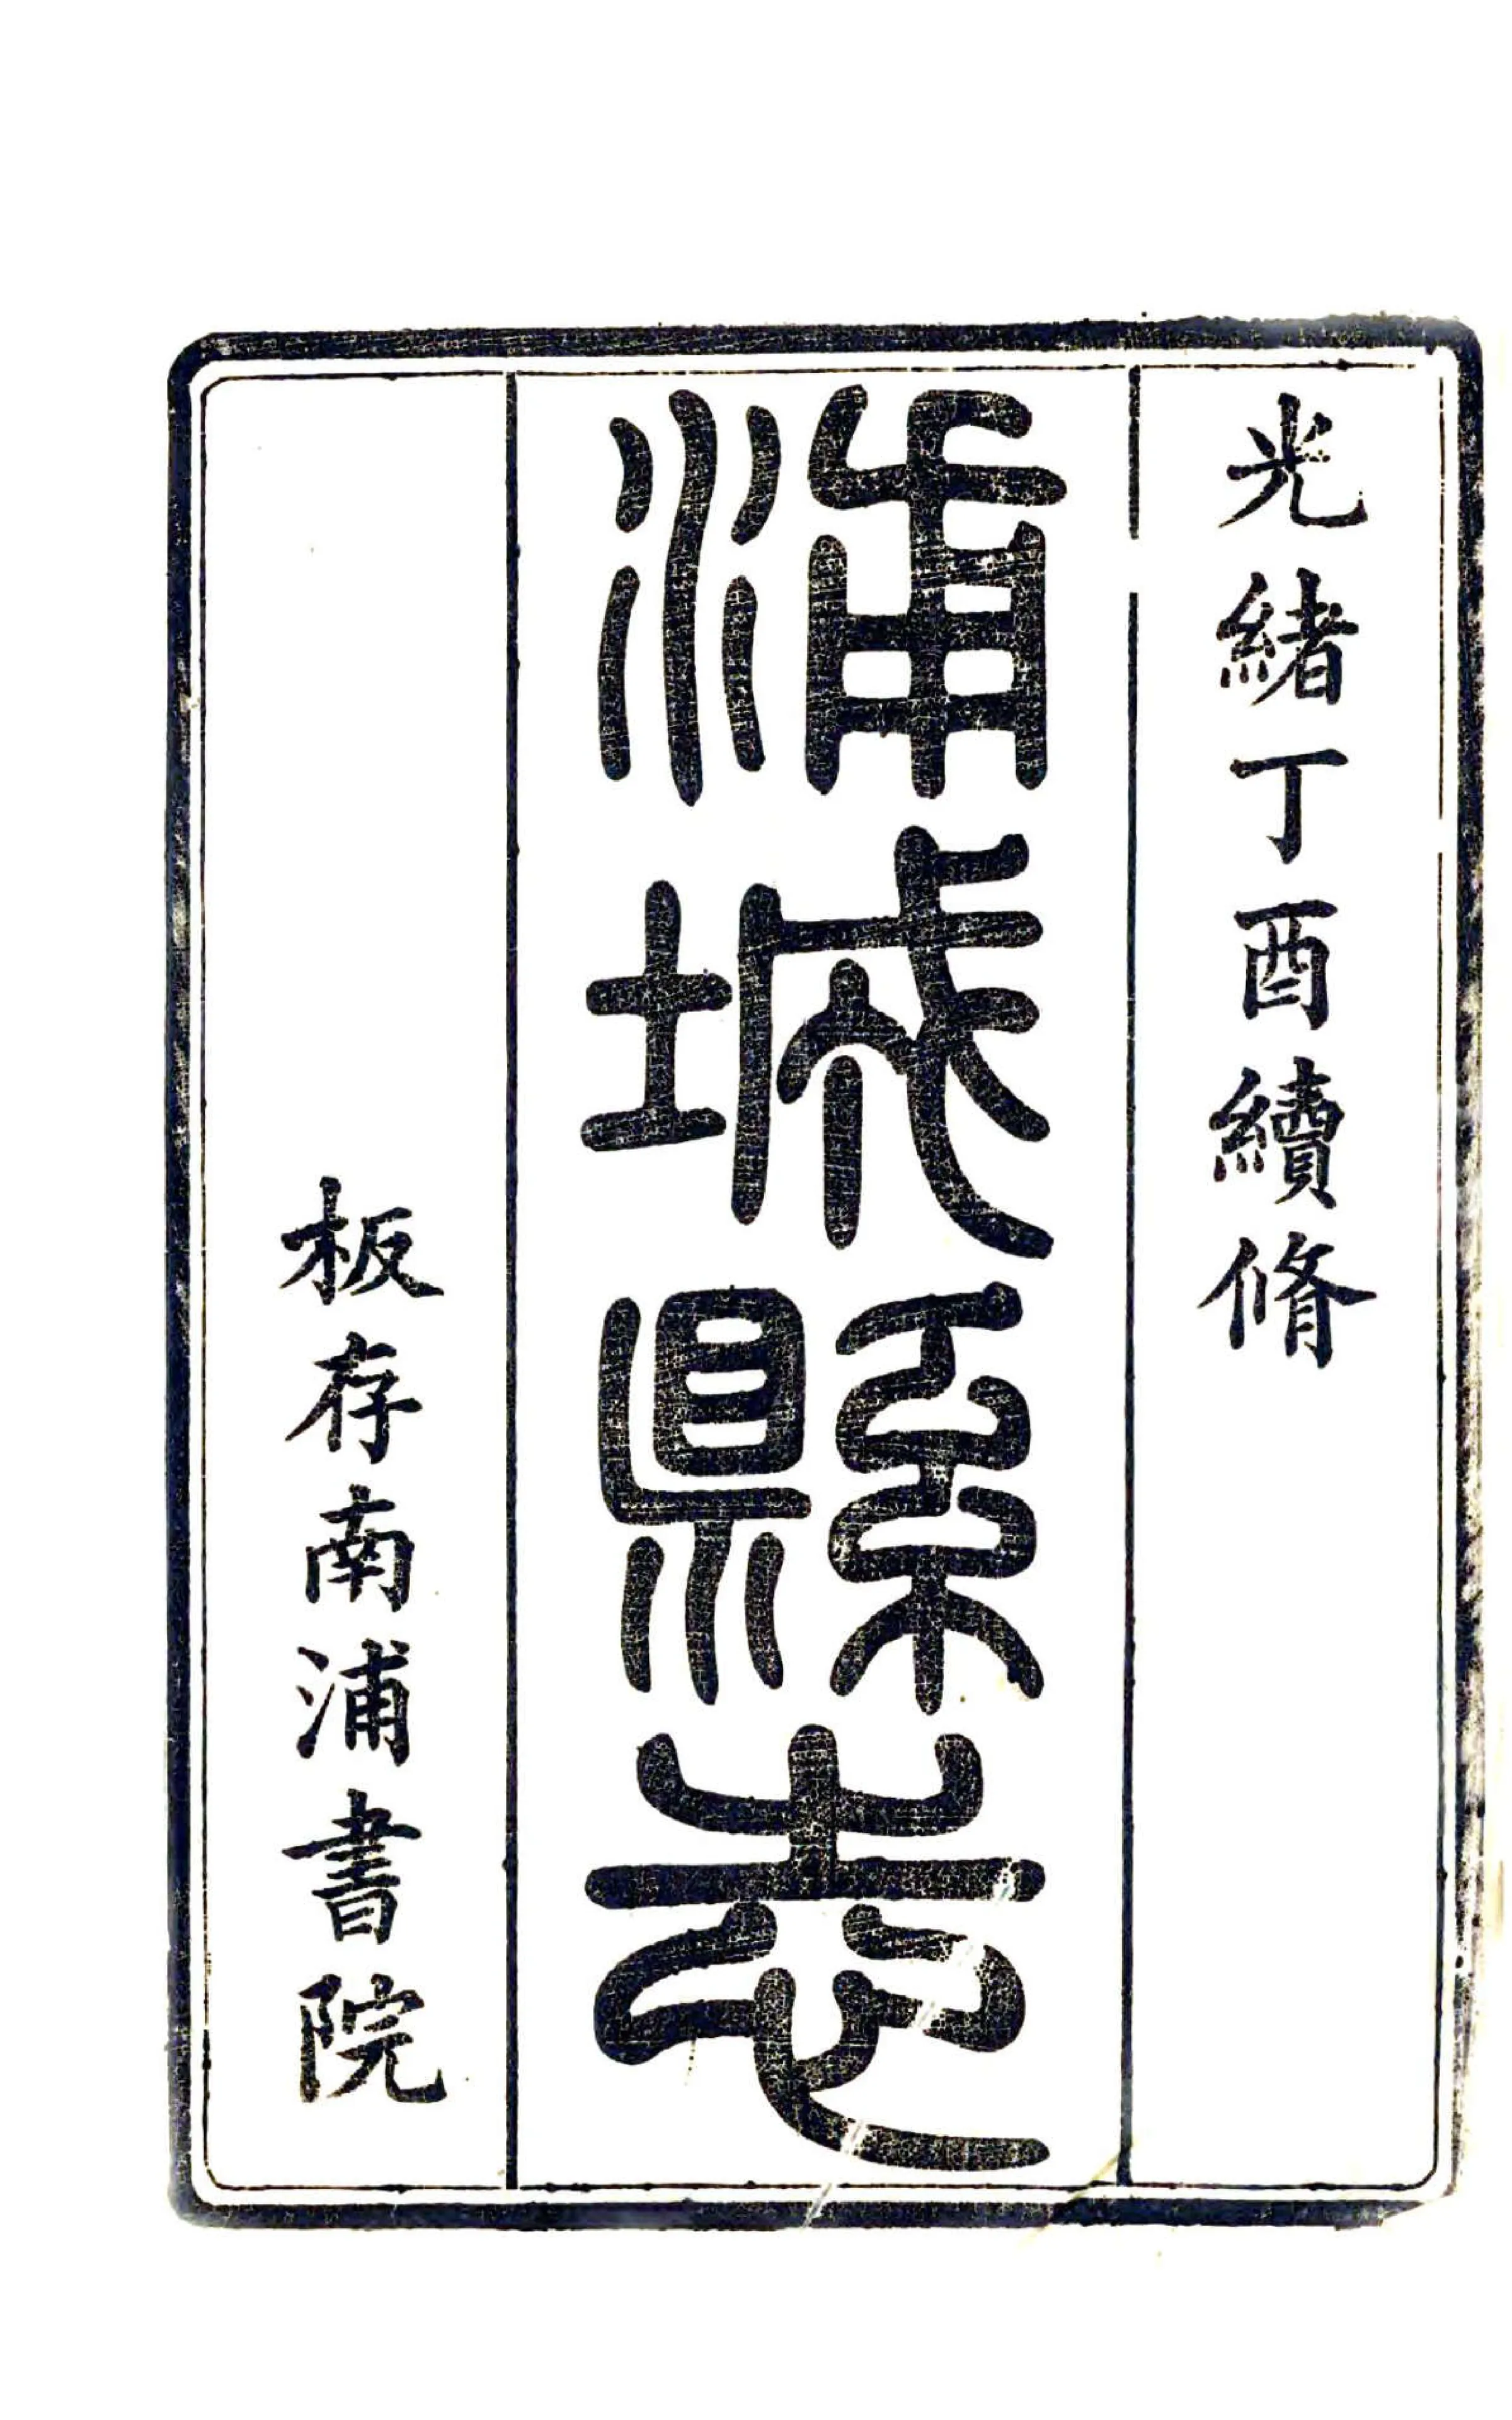 光緒丁酉續脩
浦城縣志
板存南浦書院